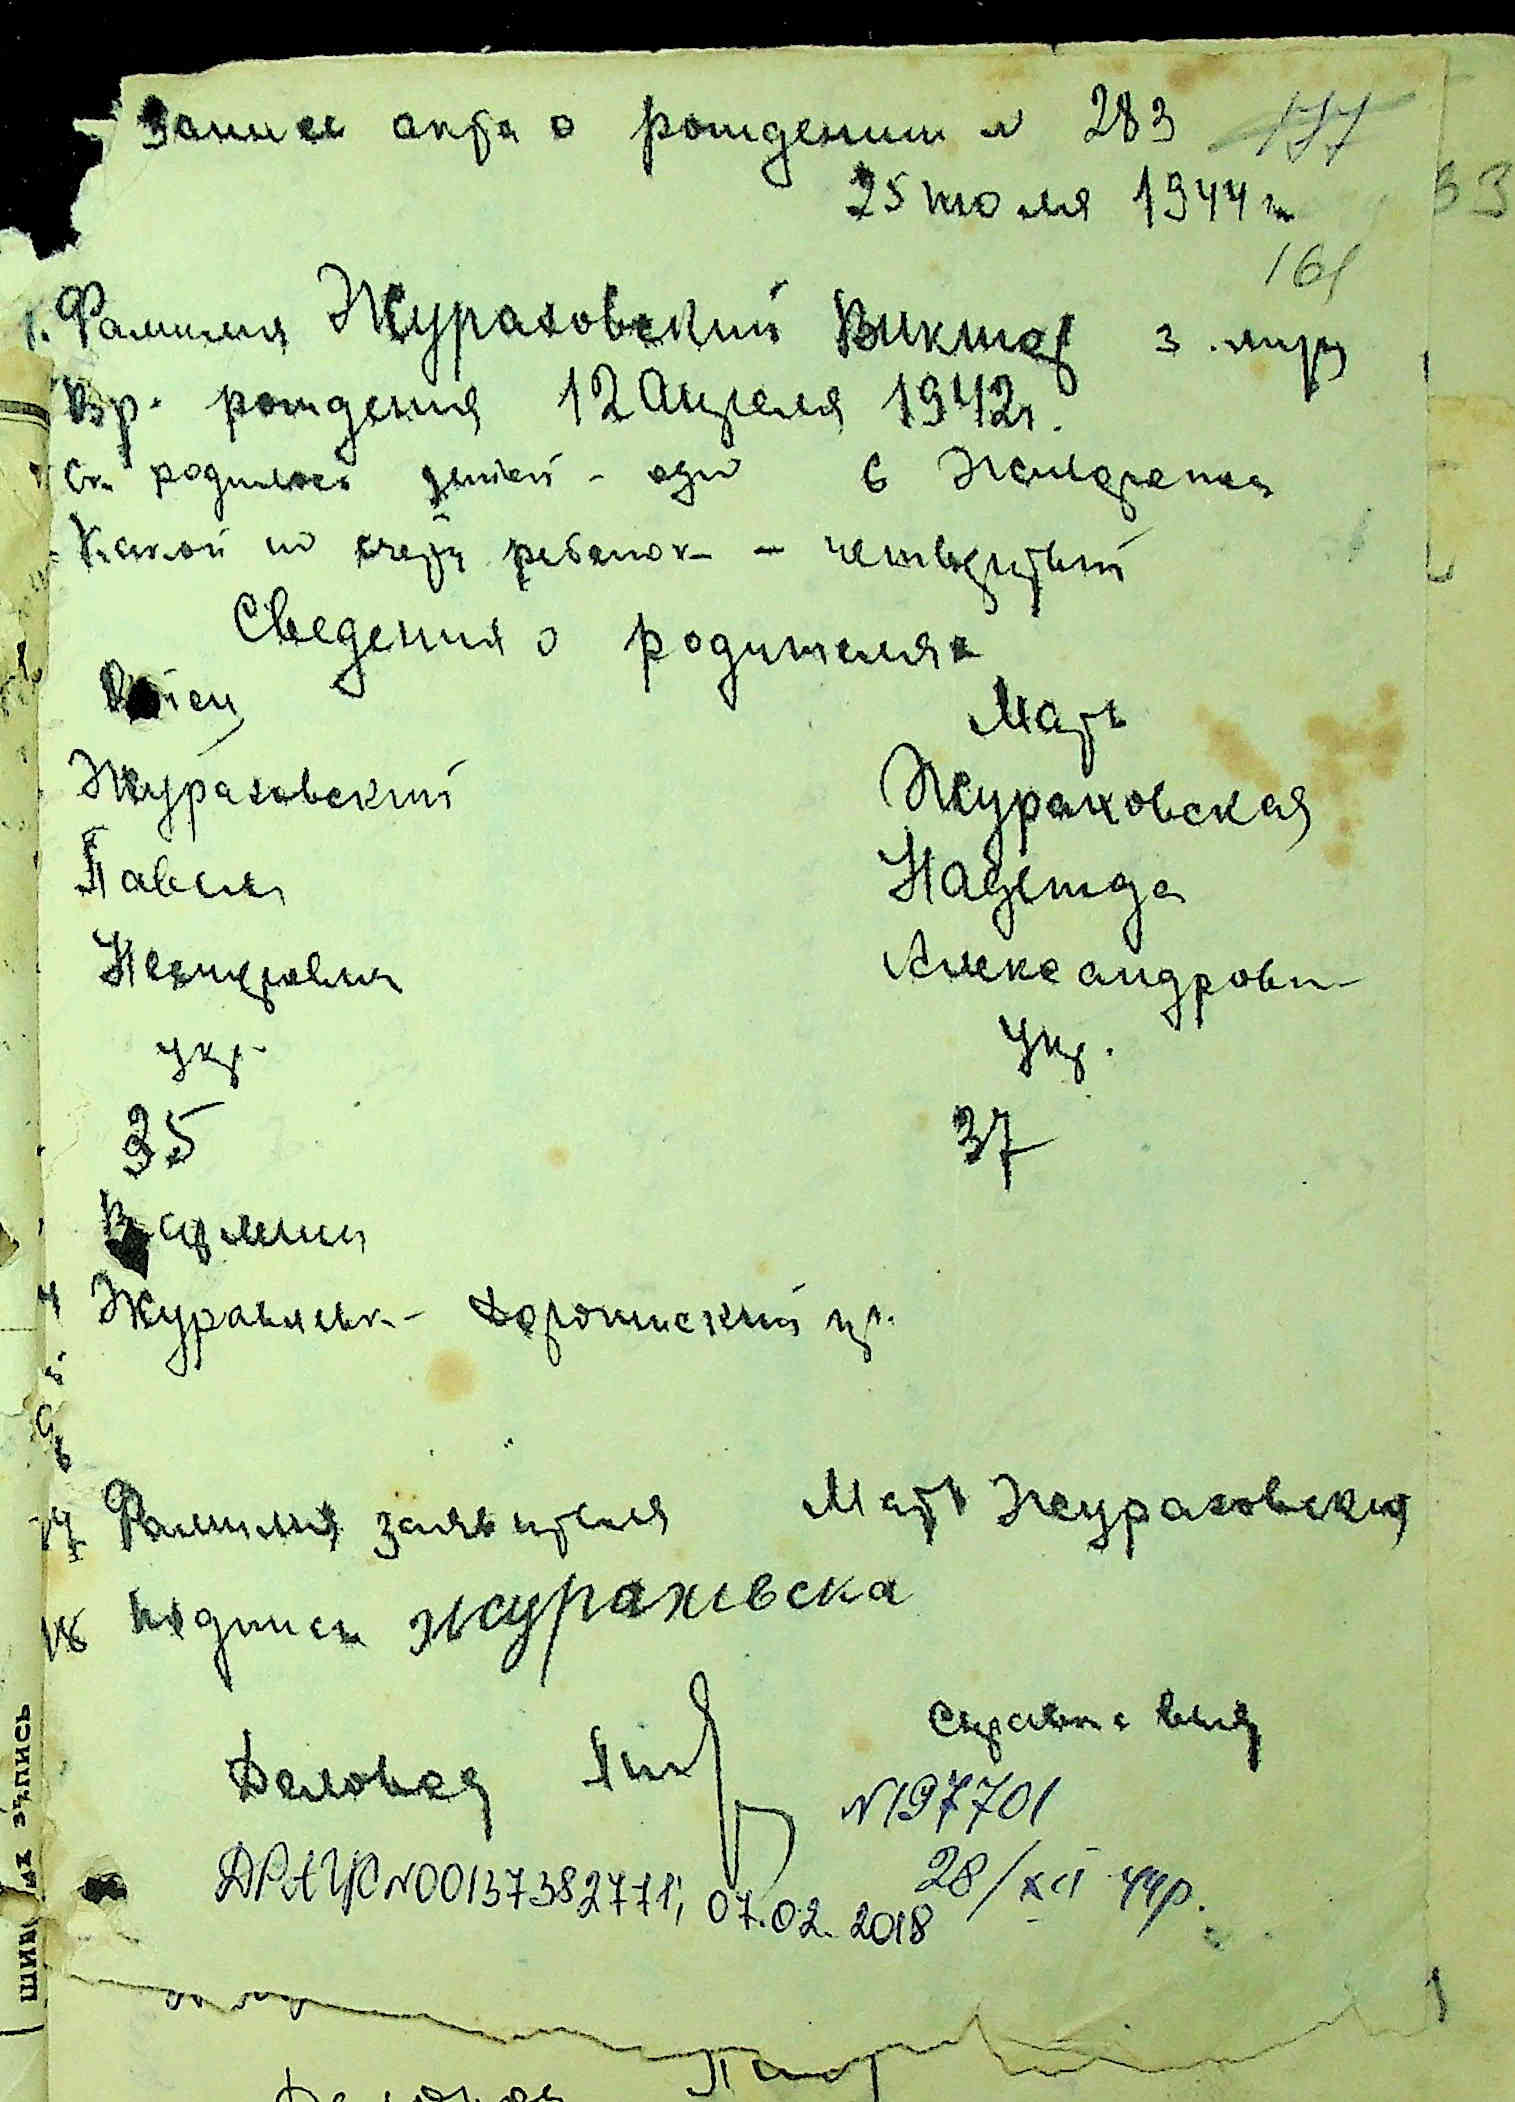 Запись акта о рождении № 283 177
25 июля 1944 г. 33
161
1. Фамилия Жураховский Виктор
Вр. рождения 12 Апреля 1942 г.
Ск. родилось детей - один в
Какой по счету ребенок - четвертый
Сведения о родителях
Отец Мать
Жураховский Жураховская
Павел Надежда
Александровн-
укр. Укр.
35 37
В армии
Журавлевк-
17 Фамилия заявителя Мать Жураховская
18 Подпись Жураховска
Деловод Справка выд
N 197701
28/XII 44р.
ДРАЦС N00137382771; 07.02.2018
запись